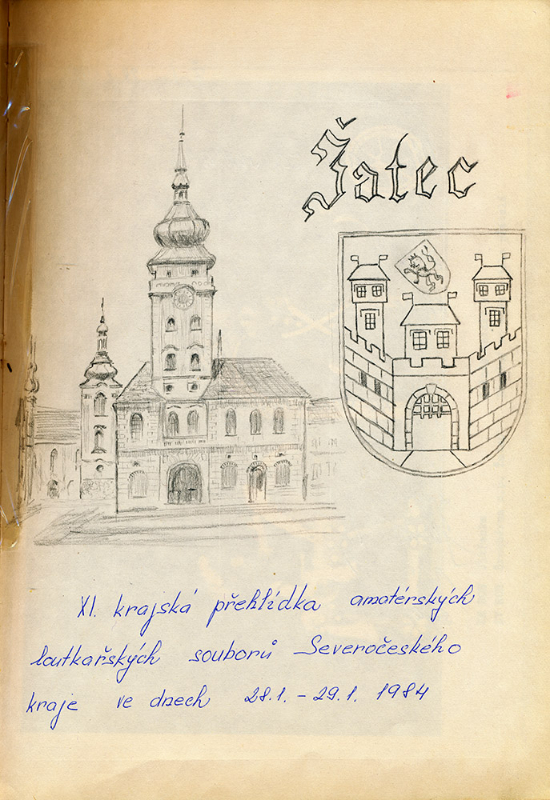 Žatec
XI. krajská přehlídka amatérských
loutkařských souborů Severočeského
kraje ve dnech 28.1. - 29.1. 1984